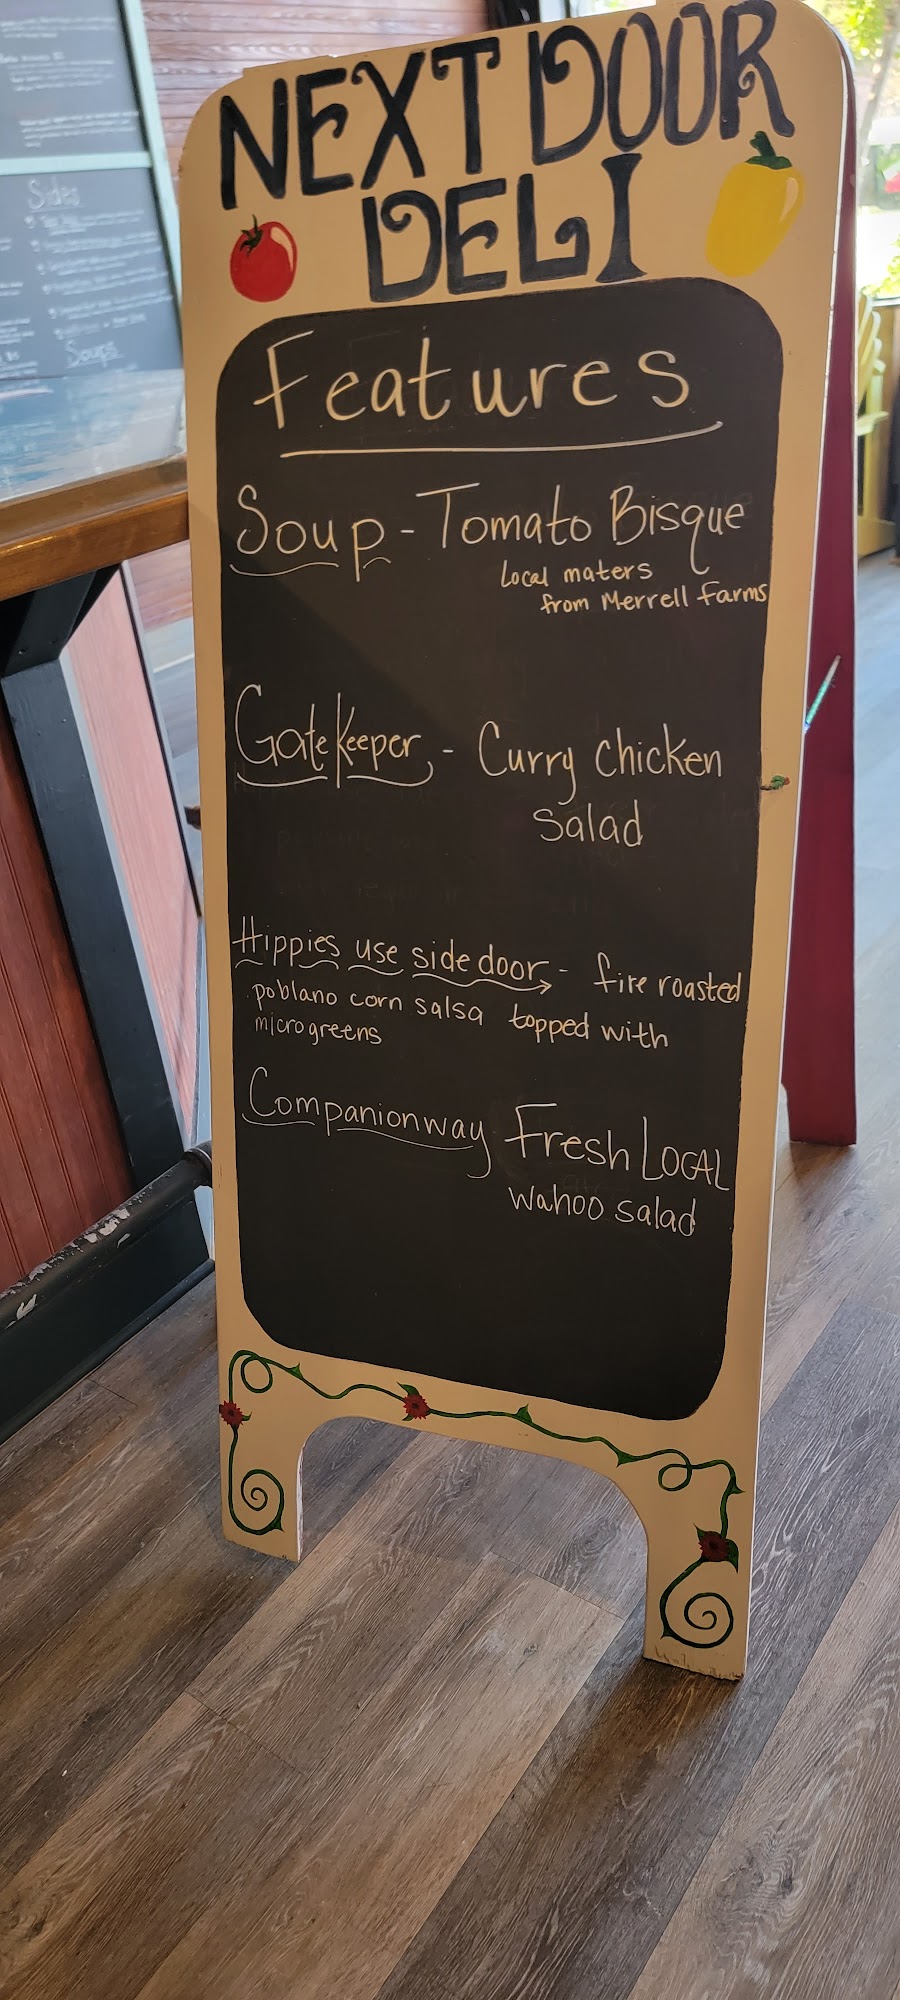 NEXT DOOR
DELI
Features
Soup - Tomato Bisque
Local maters
from Merrell Farms
GateKeeper - Curry chicken
salad
Hippies use side door - fire roasted
poblano corn salsa topped with
microgreens
Companionway Fresh LOCAL
wahoo salad
Sides
Soups